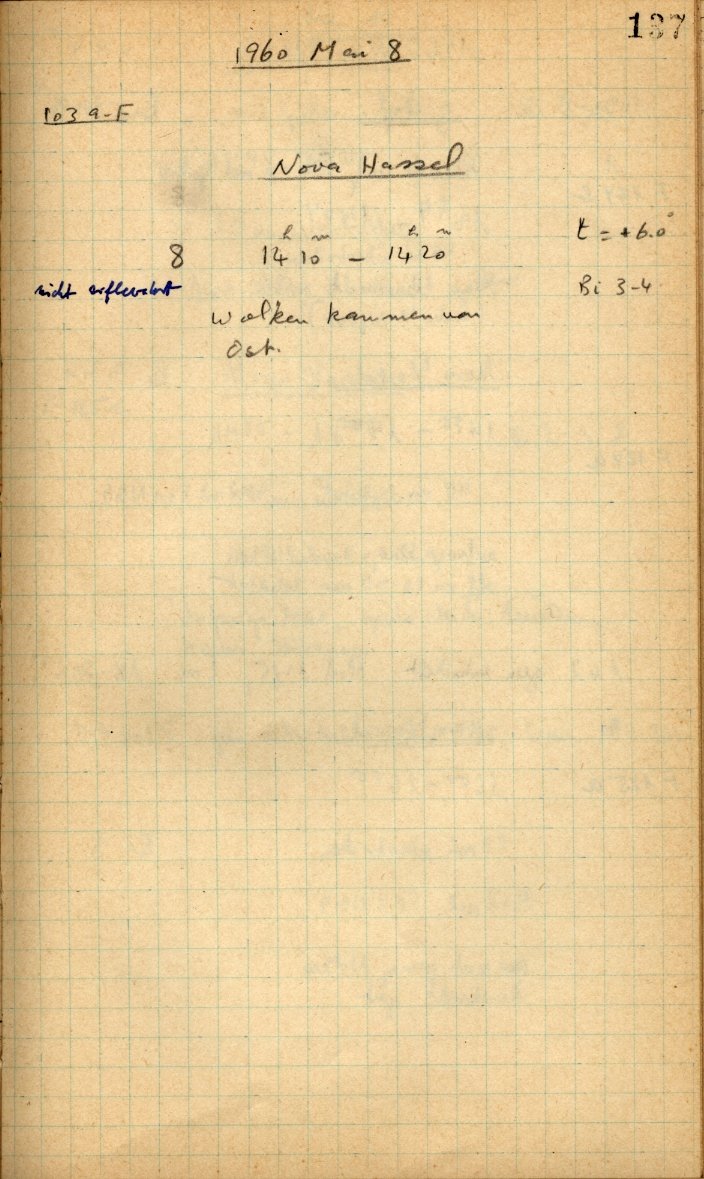 137
1960 Mai 8
103 a-F
Nova Hassel
t = +6.0°
8 14ʰ 10ᵐ – 14ʰ 20ᵐ
Bi 3-4
nicht aufbewahrt
Wolken kammen von
Ost.